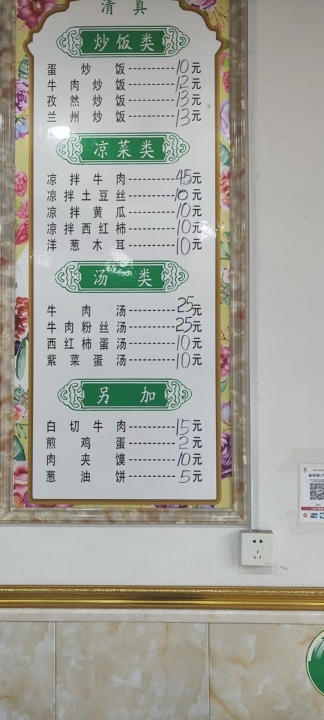 清真
炒饭类
蛋炒饭----------10元
牛肉炒饭----------12元
孜然炒饭----------13元
兰州炒饭----------13元
凉菜类
凉拌牛肉----------45元
凉拌土豆丝----------10元
凉拌黄瓜----------10元
凉拌西红柿----------10元
洋葱木耳----------10元
汤类
牛肉汤----------25元
牛肉粉丝汤----------25元
西红柿蛋汤----------10元
紫菜蛋汤----------10元
另加
白切牛肉----------15元
煎鸡蛋----------2元
肉夹馍----------10元
葱油饼----------5元